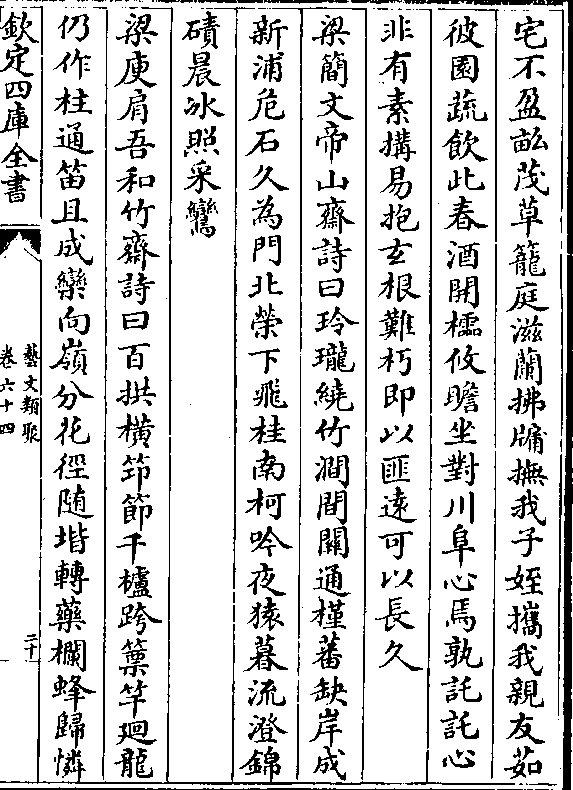 宅不盈畝茂草籠庭滋蘭拂牖撫我子姪攜我親友茹
彼園蔬飲此春酒開櫺攸瞻坐對川阜心焉孰託託心
非有素搆易抱玄根難朽即以匪遠可以長久
梁簡文帝山齋詩曰玲瓏繞竹澗間關通槿蕃缺岸成
新浦危石久為門北榮下飛桂南柯吟夜猿暮流澄錦
磧晨冰照采鸞
梁庾肩吾和竹齋詩曰百拱橫筇節千櫨跨篻竿迴龍
仍作柱通笛且成欒向嶺分花徑随堦轉藥欄蜂歸憐
欽定四庫全書
藝文類聚
卷六十四
二十